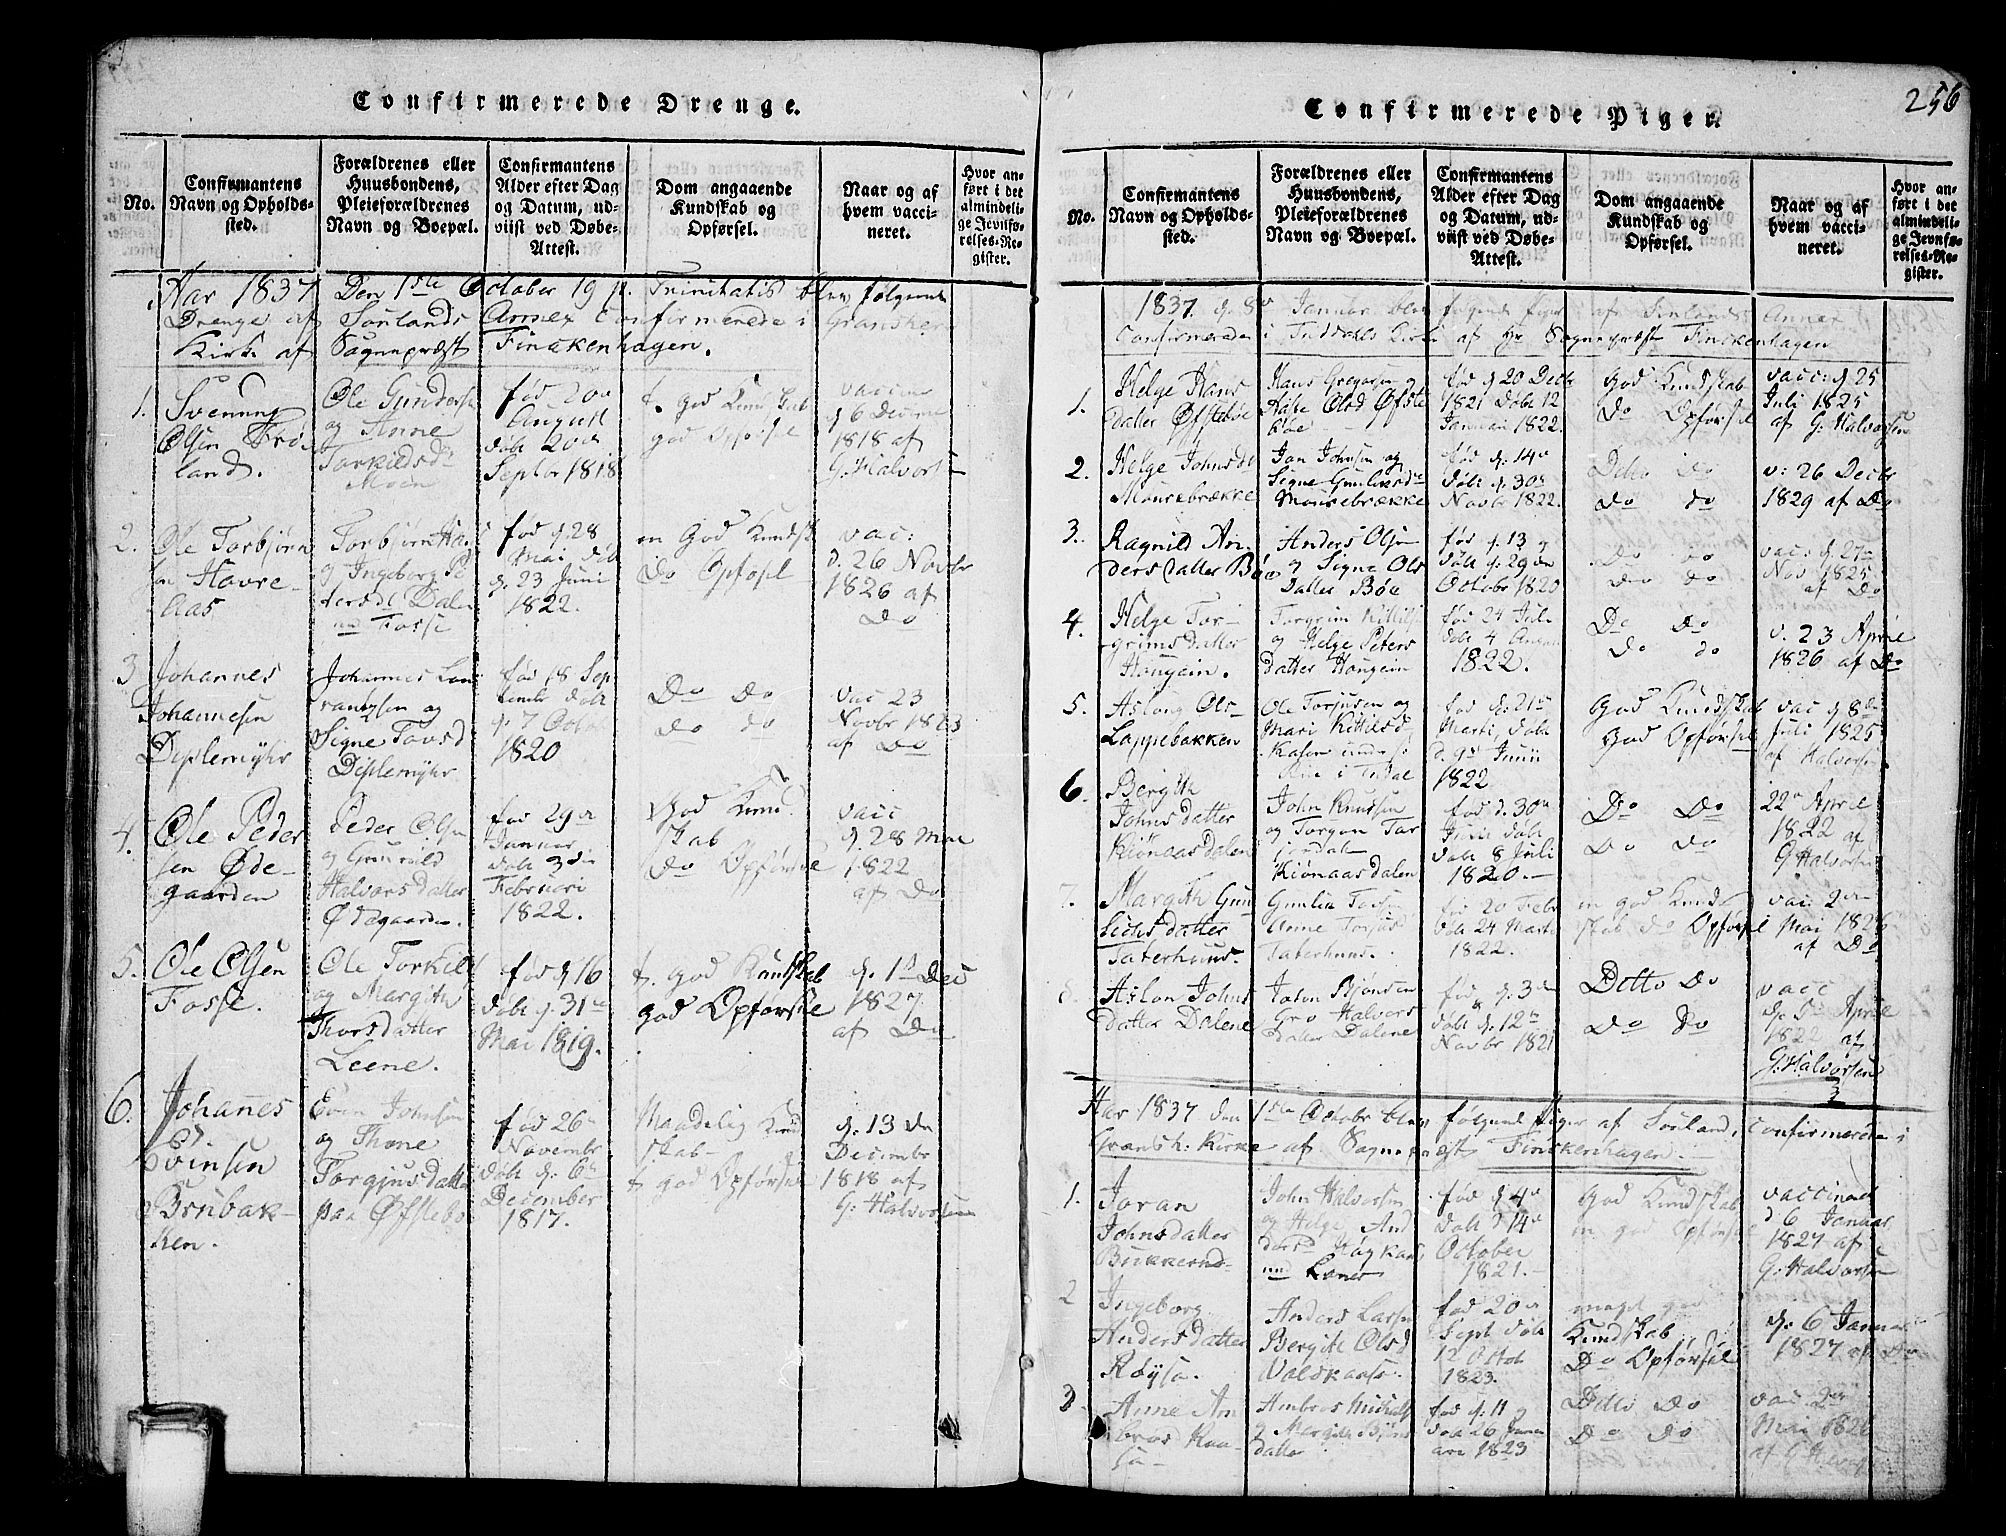 256
Confirmerede Drenge.
No.
Confirmantens
Navn og Opholds-
sted.
Forældrenes eller
Huusbondens,
Pleieforældrenes
Navn og Boepæl.
Confirmantens
Alder efter Dag
og Datum, ud-
viist ved Døbe-
Attest.
Dom angaaende
Kundskab og
Opførsel.
Naar og af
hvem vacci-
neret.
Hvor an-
ført i det
almindeli-
ge Jevnfø-
relses-Re-
gister.
Aar 1837 Den 1ste October 19 p. Trinitatis blev følgende
Drenge af Sørlands Annex confirmerede i Granskers
Kirke af Sognepræst Finckenhagen.
1.
Svenning
Olsen Frø-
land.
Ole Gunders
og Anne
Torkildsd
Moen
fød 20de
August
døbt 20de
Septbr 1818
t. god Kundskab
god Opførsel
vaccine
d. 6 Decbr
1818 af
G. Halvors
2.
Ole Torbjørn
sen Havre-
aas
Torbjørn
og Ingeborg Pe
tersd Dalen
Fosse
fød d. 28
Mai døb
d. 23 Juni
1822.
m God Kundsk
Do Opførsel
vac:
d. 26 Novbr
1826 af
Do
3
Johannes
Johannesen
Diplemyhr
Johannes Lau
rantzen og
Signe Tovsd
Diplemyhr
fød 18 Sep
tembr døbt
d. 7 Octbr
1820
Do Do
do do
vac 23
Novbr 1823
af Do
4.
Ole Peder
sen Øde-
gaarden
Peder Olsen
og Gunild
Halvorsdatter
Ødegaarden.
fød 29de
Januar
døbt 3die
Februari
1822.
God Kund
skab
Do Opførsel
vacc
d. 28 Mai
1822
af Do
5.
Ole Olsen
Fosse.
Ole Torkild
og Margith
Thorsdatter
Leene.
fød d. 16
døbt d. 31te
Mai 1819.
t. god Kundskab
god Opførsel
d. 1ste Dec
1827.
af Do
6.
Johannes
Evinsen
Brubak-
ken.
Even Johnsen
og Thone
Torgjusdatter
paa Øfstebø
fød 26de
Novembr
døbt d. 6te
December
1817.
Maadelig Kund
skab
t god Opførsel
d. 13de
Decembr
1818 af
G: Halvorsen
Confirmerede Piger.
No.
Confirmantens
Navn og Opholds-
sted.
Forældrenes eller
Huusbondens,
Pleieforældrenes
Navn og Boepæl.
Confirmantens
Alder efter Dag
og Datum, ud-
viist ved Døbe-
Attest.
Dom angaaende
Kundskab og
Opførsel.
Naar og af
hvem vacci-
neret.
Hvor an-
ført i det
almindeli-
ge Jevnfø-
relses-Re-
gister.
1837. d. 8de Januar blev følgende Piger af Sørlands Annex
Confirmerede i Kirke af Hr Sognepræst Finckenhagen
1.
Helge Hans
datter Øfstebøe
Hans Gregorsen
Olsd Øfste
bøe
fød d. 20 Decbr
1821 døbt 12
Januari 1822.
God Kundskab
Do Opførsel
vacc: d. 25
Juli 1825
af G: Halvorsen
2.
Helge Johnsd
Mourebrække
Jon Johnsen og
Signe Gunleksd
Mourebrække
fød d. 14de
døbt d. 30de
Novbr 1822.
Ditto Do
Do do
v: 26 Decbr
1829 af Do
3.
Ragnild An-
dersdatter Bøe
Anders Olsen
og Signe Ols
datter Bøe
fød d. 13
døbt d. 29de
Octobr 1820
Do Do
Do do
vac: d. 27de
Nov 1825
af Do
4.
Helge Tor-
grimsdatter
Hougein.
Torgrim
og Helge Peters
datter Hougein
fød 24 Juli
døbt 4
1822.
Do Do
Do do
v. 23 Aprie
1826 af Do
5.
Asloug Ols-
Lappebakken
Ole Torjusen og
Mari Kittilsd
fød d. 21de
Marti, døbt
d. 9de Juni
1822
God Kundskab
God Opførsel
vac d. 8de
Juli 1825
af Halvorsen
6.
Bergith
Johnsdatter
Kiönaasdalen
John Knutsen
og Torgon Tar
jorsdal
Kiönaasdalen
fød d. 30de
Juni døbt
døbt 8 Juli
1820.
Do Do
Do do
22de Aprie
1822 af
G. Halvorsen
7.
Margith Gun
lichsdatter
Taterhuus.
Gunlik
Anne Torjusd
Taterhuus.
fød 20 Febr
døbt 24 Marti
1822.
m god Kund
skab do Opførsel
vac: 2den
Mai 1826
af Do
8.
Aslou Johns
datter Dalene
John Bjönsen
Gro Halvors
datter Dalene
fød d. 3de
døbt d. 12te
Novbr 1821
Ditto Do
Do Do
vacc
d. 5te Aprie
1822 af
G: Halvorsen
Aar 1837 den 1ste Octobr blev følgende Piger af Sørland, confirmerede i
Gransh. Kirke af Sognepræst Finckenhagen.
1.
Joran
Johnsdatter
John Halvorsen
og Helge And
dersd
fød d. 4de
døbt d. 14de
October
1821.
God Kundskab
m god Opførsel
vaccineret
d. 6 Januar
1827 af
G: Halvorsen
2
Ingeborg
Andersdatter
Röysa.
Anders Larsen
Bergite Olsd
fød 20de
Sept døbt
12 Octob
1823.
meget god
Kundskab
Do Opførsel
d: 6 Janua
1827 af Do
3.
Anne Am
bros
Ambros
datter
fød d. 11
døb 26 Janu
ari 1823
Ditto Do
Do do
vac. 2den
Mai 1826